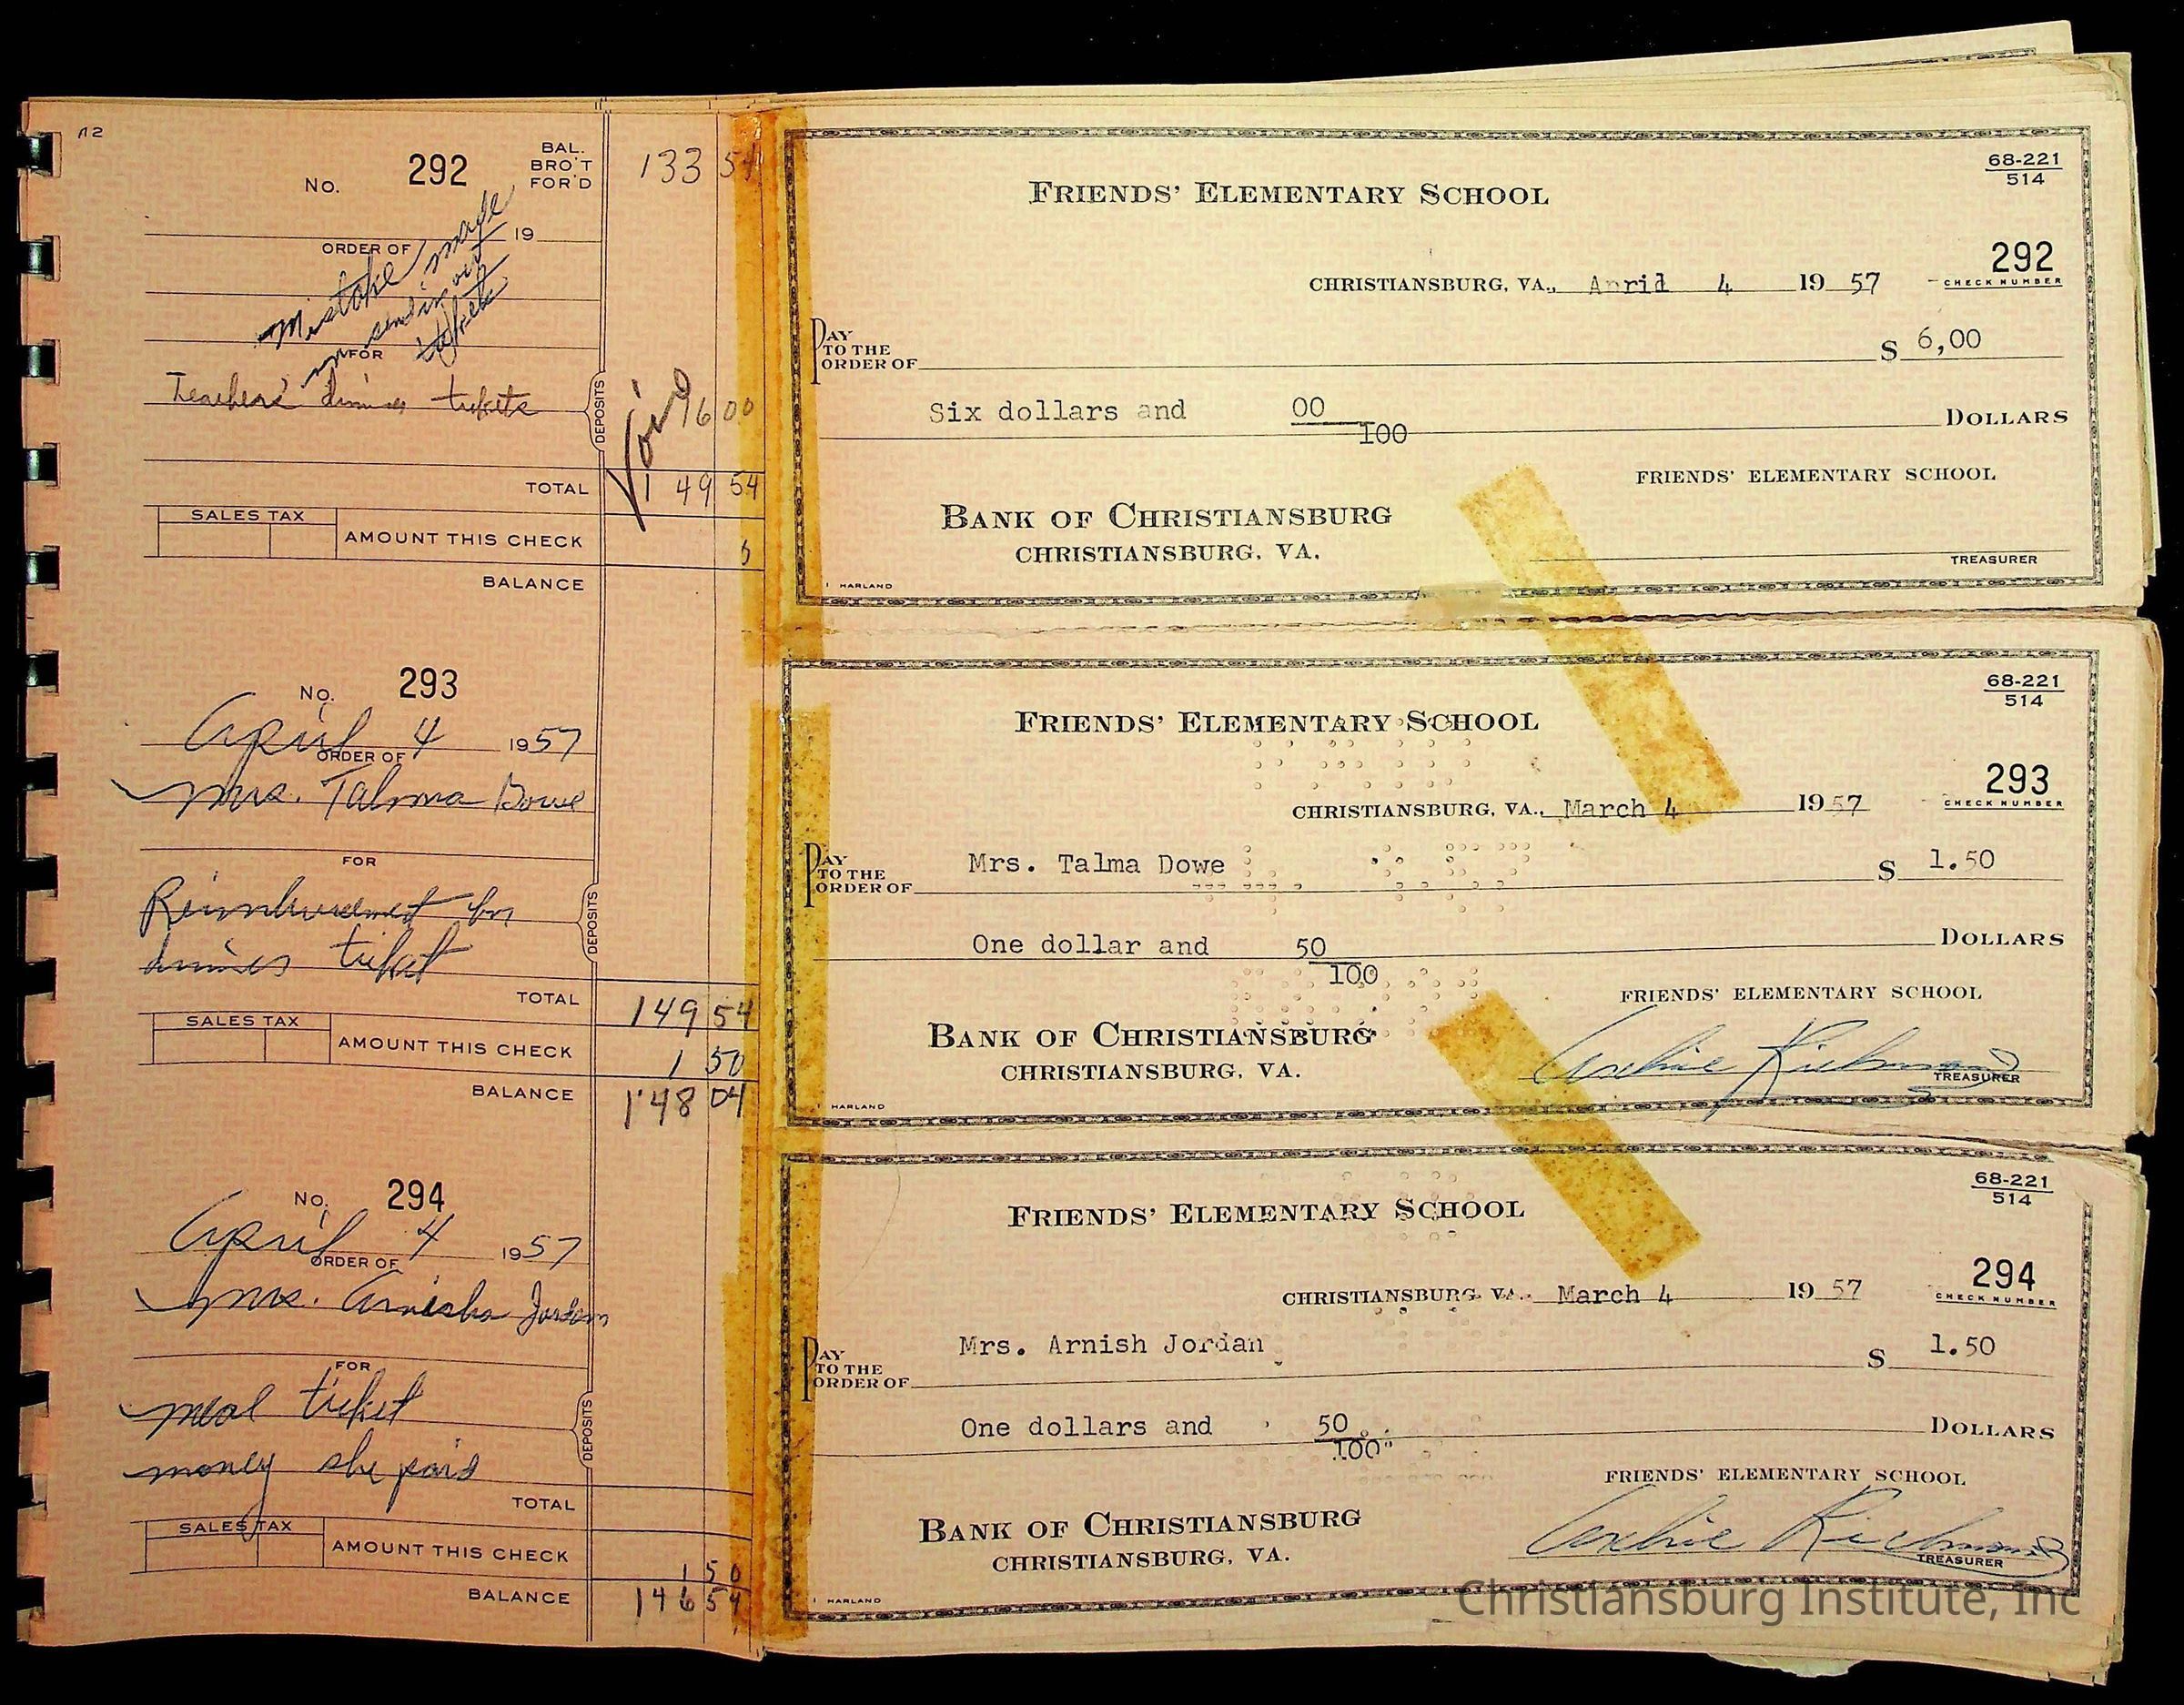 No. 292
BAL.
BRO'T
FOR'D
133 54
19
ORDER OF
Mistake made
in sending out
tickets
FOR
Teachers' dinner tickets
DEPOSITS
Void
16 00
TOTAL 149 54
SALES TAX
AMOUNT THIS CHECK 6
BALANCE
68-221
514
FRIENDS' ELEMENTARY SCHOOL
292
CHECK NUMBER
CHRISTIANSBURG, VA., Anrid 4 19 57
PAY
TO THE
ORDER OF
$ 6,00
Six dollars and 00
100
DOLLARS
FRIENDS' ELEMENTARY SCHOOL
BANK OF CHRISTIANSBURG
CHRISTIANSBURG, VA.
TREASURER
HARLAND
No. 293
April 4 1957
ORDER OF
Mrs. Talma Dowe
FOR
Reimbursement for
dinner ticket
DEPOSITS
TOTAL 149 54
SALES TAX
AMOUNT THIS CHECK 1 50
BALANCE 148 04
68-221
514
FRIENDS' ELEMENTARY SCHOOL
293
CHECK NUMBER
CHRISTIANSBURG, VA., March 4 1957
PAY
TO THE
ORDER OF
Mrs. Talma Dowe $ 1.50
One dollar and 50
100
DOLLARS
FRIENDS' ELEMENTARY SCHOOL
BANK OF CHRISTIANSBURG
CHRISTIANSBURG, VA.
Archie Richmond
TREASURER
HARLAND
No. 294
April 4 1957
ORDER OF
Mrs. Arnisha Jordan
FOR
meal ticket
money she paid
DEPOSITS
TOTAL
SALES TAX
AMOUNT THIS CHECK 1 50
BALANCE 146 54
68-221
514
FRIENDS' ELEMENTARY SCHOOL
294
CHECK NUMBER
CHRISTIANSBURG, VA., March 4 19 57
PAY
TO THE
ORDER OF
Mrs. Arnish Jordan $ 1.50
One dollars and 50
100
DOLLARS
FRIENDS' ELEMENTARY SCHOOL
BANK OF CHRISTIANSBURG
CHRISTIANSBURG, VA.
Archie Richmond
TREASURER
HARLAND
Christiansburg Institute, Inc